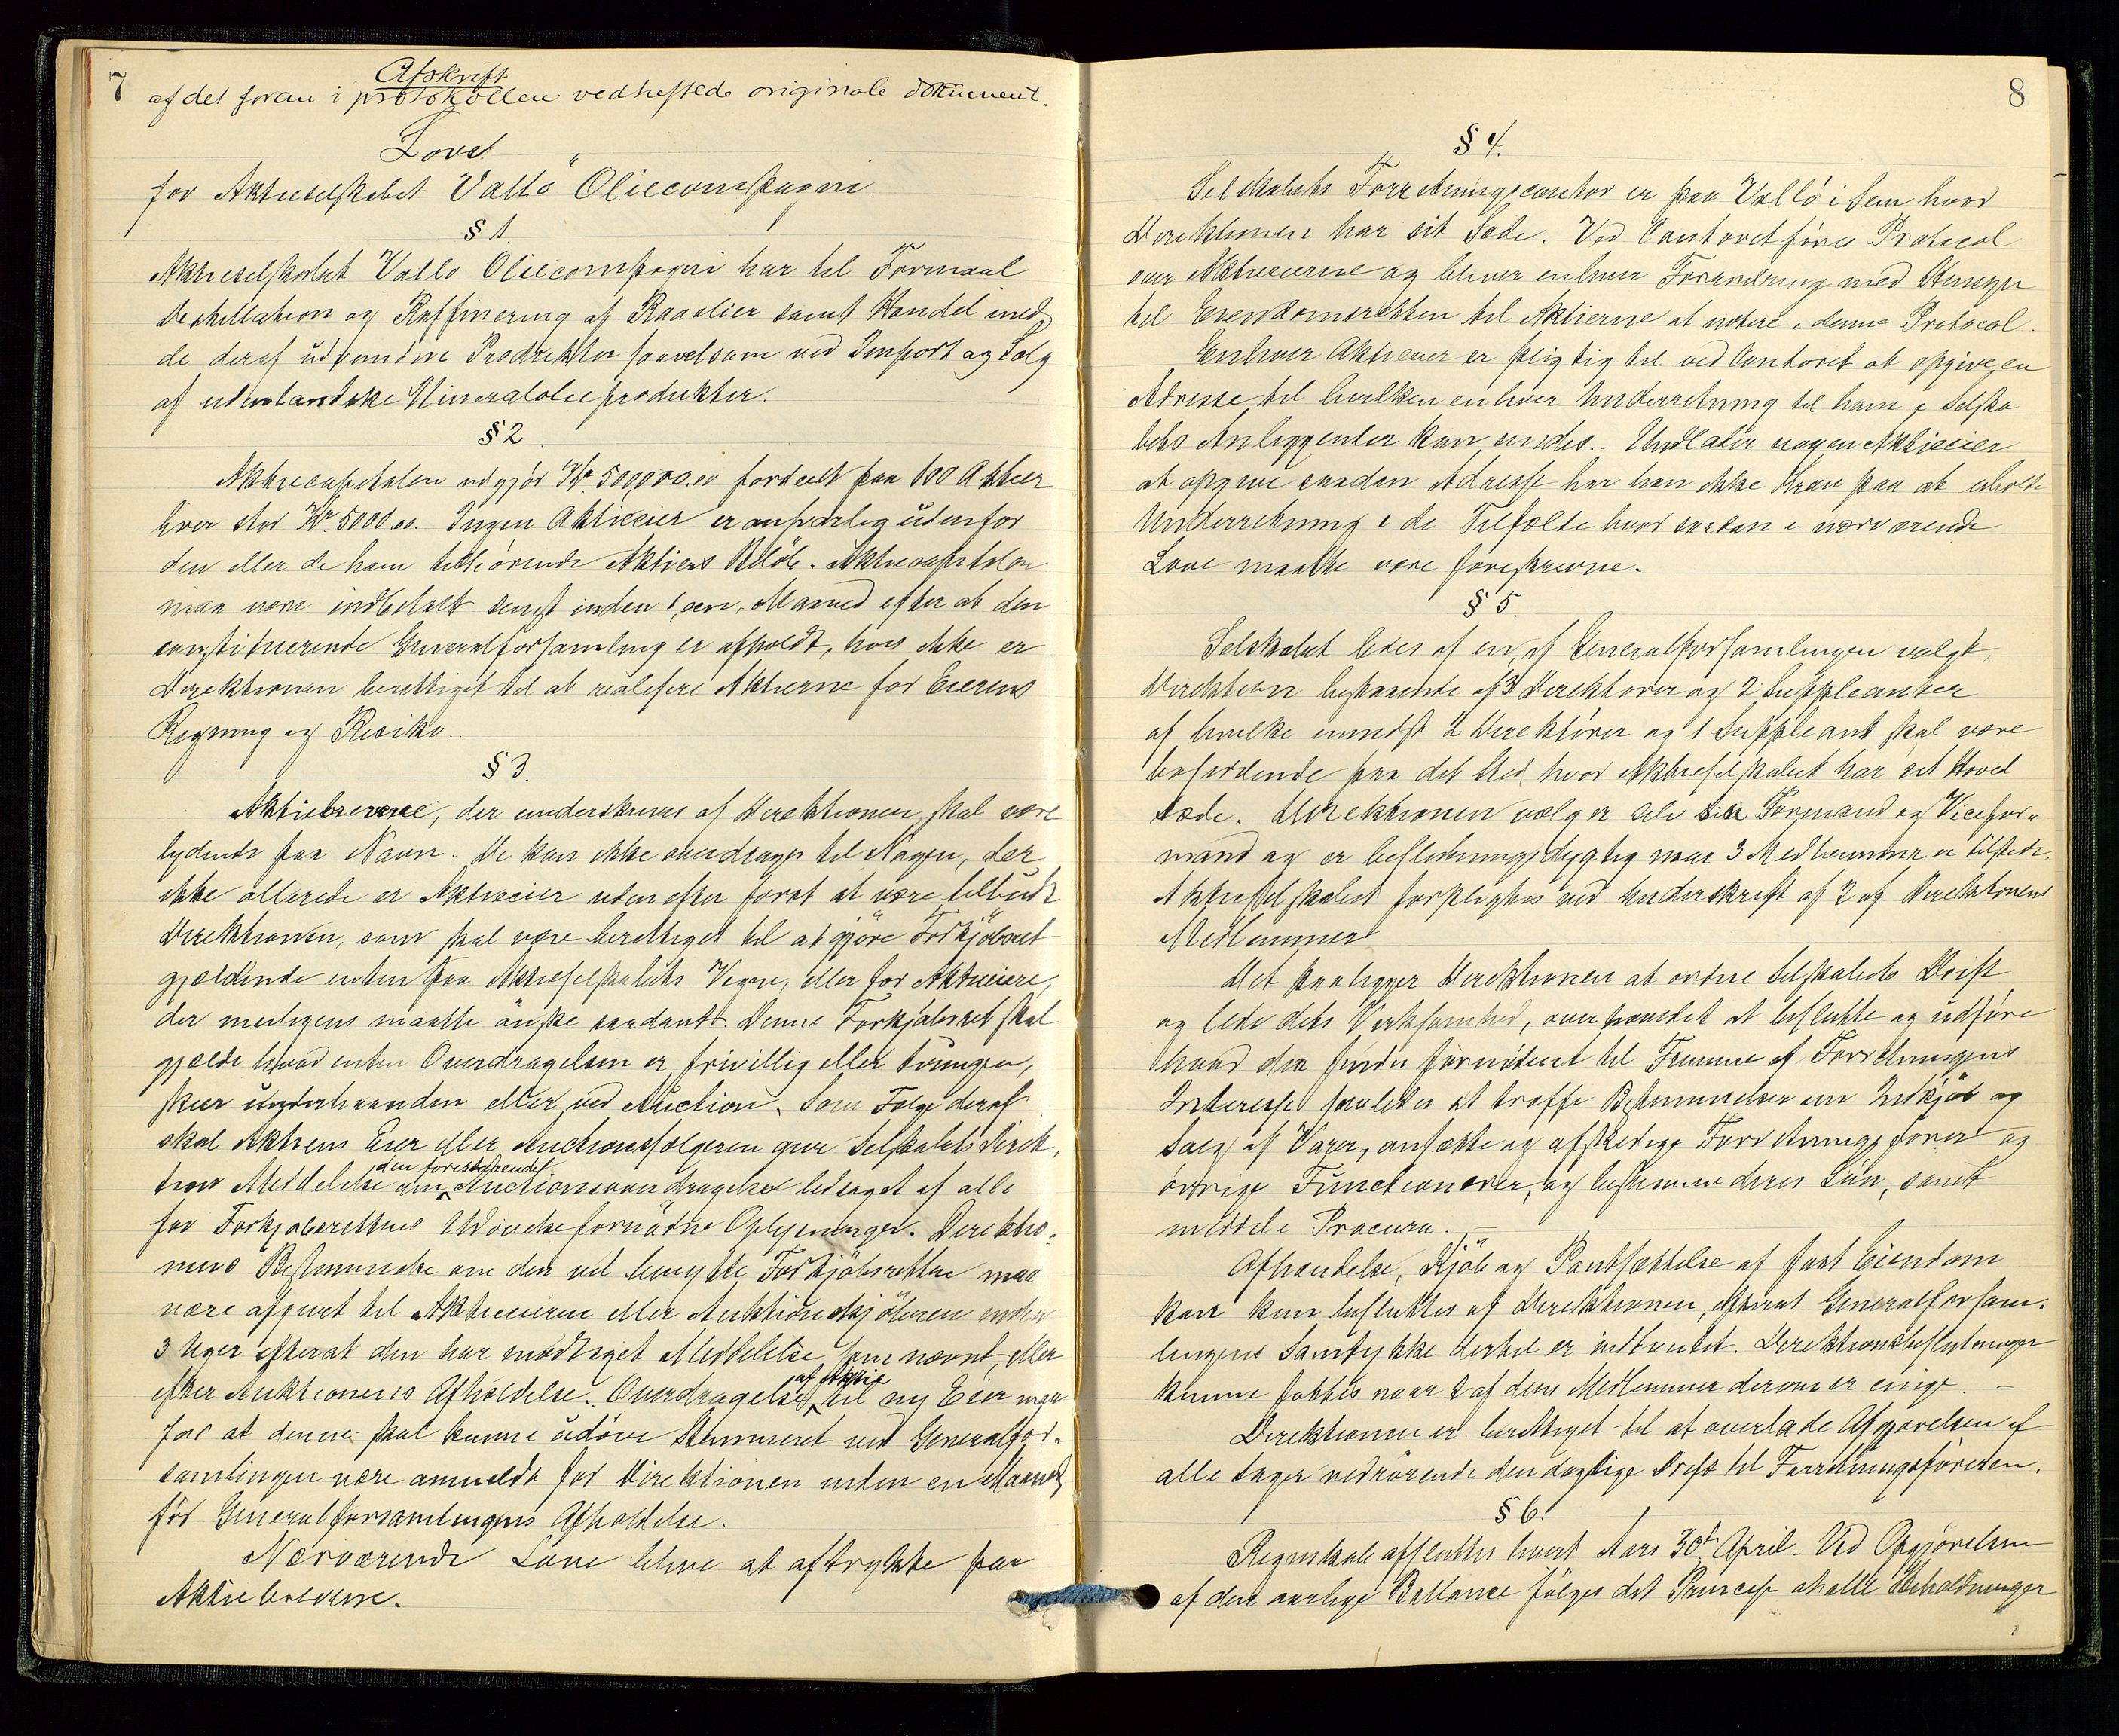 7
Afskrift
af det foran i protokollen vedheftede originale dokument.
Love
for Aktieselskabet Vallö Oliecompagni.
§ 1.
Aktieselskabet Vallö Oliecompagni har til Formaal
Destillation og Raffinering af Raaolier samt Handel med
de deraf udvundne Produkter saavelsom ved Import og Salg
af udenlandske Mineralolieprodukter.
§ 2.
Aktiecapitalen udgjør Kr. 500,000.00 fordeelt paa 100 Aktier
hver stor Kr. 5000.00. Ingen Aktieeier er ansvarlig udenfor
den eller de ham tilhørende Aktiers Beløb. Aktiecapitalen
maa være indbetalt senest inden 1, een, Maaned efter at den
constituerende Generalforsamling er afholdt, hvis ikke er
Direktionen berettiget til at realisere Aktierne for Eierens
Regning og Risiko.
§ 3.
Aktiebrevene, der underskrives af Direktionen, skal være
lydende paa Navn. De kan ikke overdrages til Nogen, der
ikke allerede er Aktieeier uden efter først at være tilbudt
Direktionen, som skal være berettiget til at gjöre Forkjöbsret
gjældende enten paa Aktieselskabets Vegne, eller for Aktieeiere,
der maatte önske saadant. Denne Forkjøbsret skal
gjælde hvad enten Overdragelsen er frivillig eller tvungen,
skeer underhaanden eller ved Auction. Som Følge deraf
skal Aktiens Eier eller Auctionssælgeren give Selskabets Direk-
tion Meddelelse om den forestaaende Auctionsoverdragelse ledsaget af alle
for Forkjøbsrettens Udøvelse fornødne Oplysninger. Direktio-
nens Bestemmelse om den vil benytte Forkjöbsretten maa
være afgivet til Aktieeieren eller Auktionskjöberen inden
3 Uger efterat den har modtaget Meddelelse som nævnt, eller
efter Auktionens Afholdelse. Overdragelse af Aktie til ny Eier maa
for at denne skal kunne udöve Stemmeret ved Generalfor-
samlingen være anmeldt for Direktionen inden en Maaned
för Generalforsamlingens Afholdelse.
Nærværende Love blive at aftrykke paa
Aktiebrevene.
8
§ 4.
Selskabets Forretningscontor er paa Vallö i Sem hvor
Direktionen har sit Sæde. Ved Contoret føres Protocol
over Aktieeierne og bliver enhver Forandring med Hensyn
til Eiendomsretten til Aktierne at notere i denne Protocol.
Enhver Aktieeier er pligtig til ved Contoret at opgive en
Adresse til hvilken enhver Underretning til ham i Selska
bets Anliggender kan sendes. Undlader nogen Aktieeier
at opgive saadan Adresse har han ikke Krav paa at erholde
Underretning i de Tilfælde hvor saadan i nærværende
Love maatte være foreskrevne.
§ 5.
Selskabet ledes af en af Generalforsamlingen valgt,
Direktion bestaaende af 3 Direktører og 2 Suppleanter
af hvilke mindst 2 Direktører og 1 Suppleant skal være
bosiddende paa det Sted, hvor Aktieselskabet har sit Hoved
sæde. Direktionen vælger selv sin Formand og Vicefor-
mand og er beslutningsdygtig naar 3 Medlemmer er tilstede.
Aktieselskabet forpligtes ved Underskrift af 2 af Direktionens
Medlemmer
Det paaligger Direktionen at ordne Selskabets Drift
og lede dets Virksomhed, overhovedet at beslutte og udføre
hvad den finder fornødent til Fremme af Forretningens
Interesse saaledes at træffe Bestemmelser om Indkjöb og
Salg af Varer, ansætte og afskedige Forretningsfører og
övrige Functionærer, og bestemme deres Løn, samt
meddele Procura. —
Afhændelse, Kjöb og Pantsættelse af fast Eiendom
kan kun besluttes af Direktionen, efterat Generalforsam-
lingens Samtykke dertil er indhentet. Direktionsbeslutninger
kunne fattes naar 2 af dens Medlemmer derom er enige. —
Direktionen er berettiget til at overlade Afgjørelsen af
alle Sager vedrörende den daglige Drift til Forretningsföreren.
§ 6.
Regnskab afsluttes hvert Aars 30te April. Ved Opgjørelsen
af den aarlige Ballance fölges det Princip at alle Beholdninger